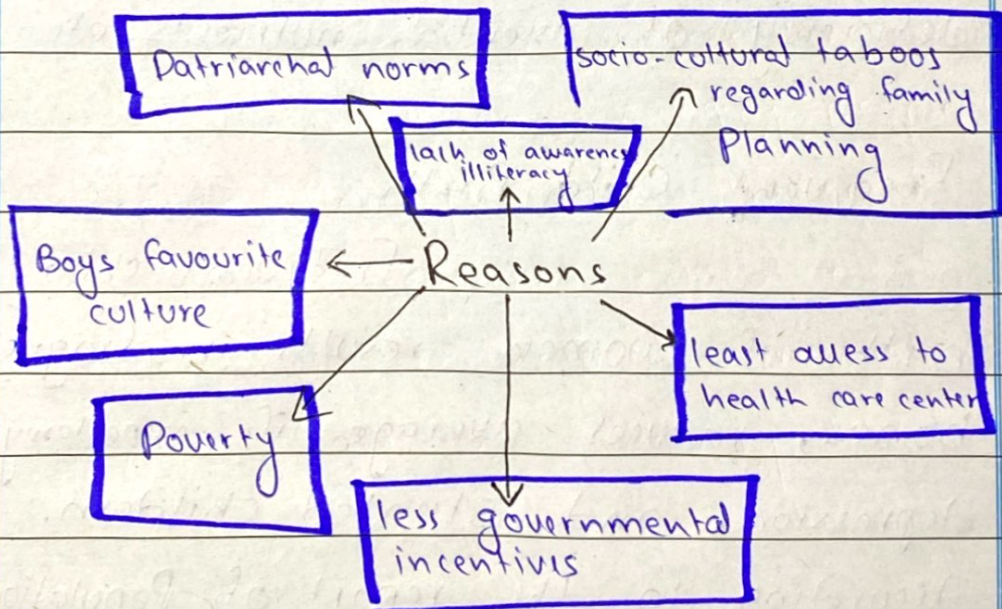 Patriarchal norms
socio-cultural taboos
regarding family
Planning
lack of awarenes
illiteracy
Boys favourite
culture
Reasons
least access to
health care center
Poverty
less governmental
incentives